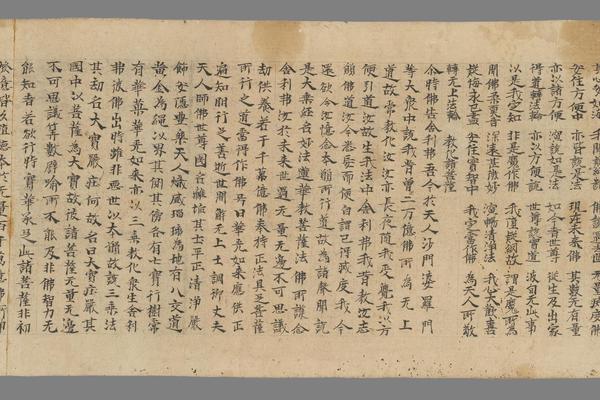 安住方便中 亦皆說是法 現在未來佛 其數無有量
亦以諸方便 演說如是法 如今者世尊 從生及出家
得道轉法輪 亦以方便說 世尊說實道 波旬無此事
以是我定知 非是魔作佛 我墮疑網故 謂是魔所為
聞佛柔軟音 深遠甚微妙 演暢清淨法 我心大歡喜
疑悔永已盡 安住實智中 我定當作佛 為天人所敬
轉無上法輪 教化諸菩薩
爾時佛告舍利弗吾今於天人沙門婆羅門
等大眾中說我昔曾二萬億佛所為無上
道故常教化汝汝亦長夜隨我受學我以方
便引導汝故生我法中舍利弗我昔教汝志
願佛道汝今悉忘而便自謂已得滅度我今
還欲令汝憶念本願所行道故為諸聲聞說
是大乘經名妙法蓮華教菩薩法佛所護念
舍利弗汝於未來世過無量無邊不可思議
劫供養若干千萬億佛奉持正法具足菩薩
所行之道當得作佛号曰華光如來應供正
遍知明行足善逝世間解無上士調御丈夫
天人師佛世尊國名離垢其土平正清淨嚴
飾安隱豐樂天人熾盛琉璃為地有八交道
黃金為繩以界其側其傍各有七寶行樹常
有華菓華光如來亦以三乘教化眾生舍利
弗彼佛出時雖非惡世以本願故說三乘法
其劫名大寶嚴莊何故名曰大寶莊嚴其
國中以菩薩為大寶故彼諸菩薩無量無邊
不可思議算數譬喻所不能及非佛智力無
能知者若欲行時寶華承足此諸菩薩非初